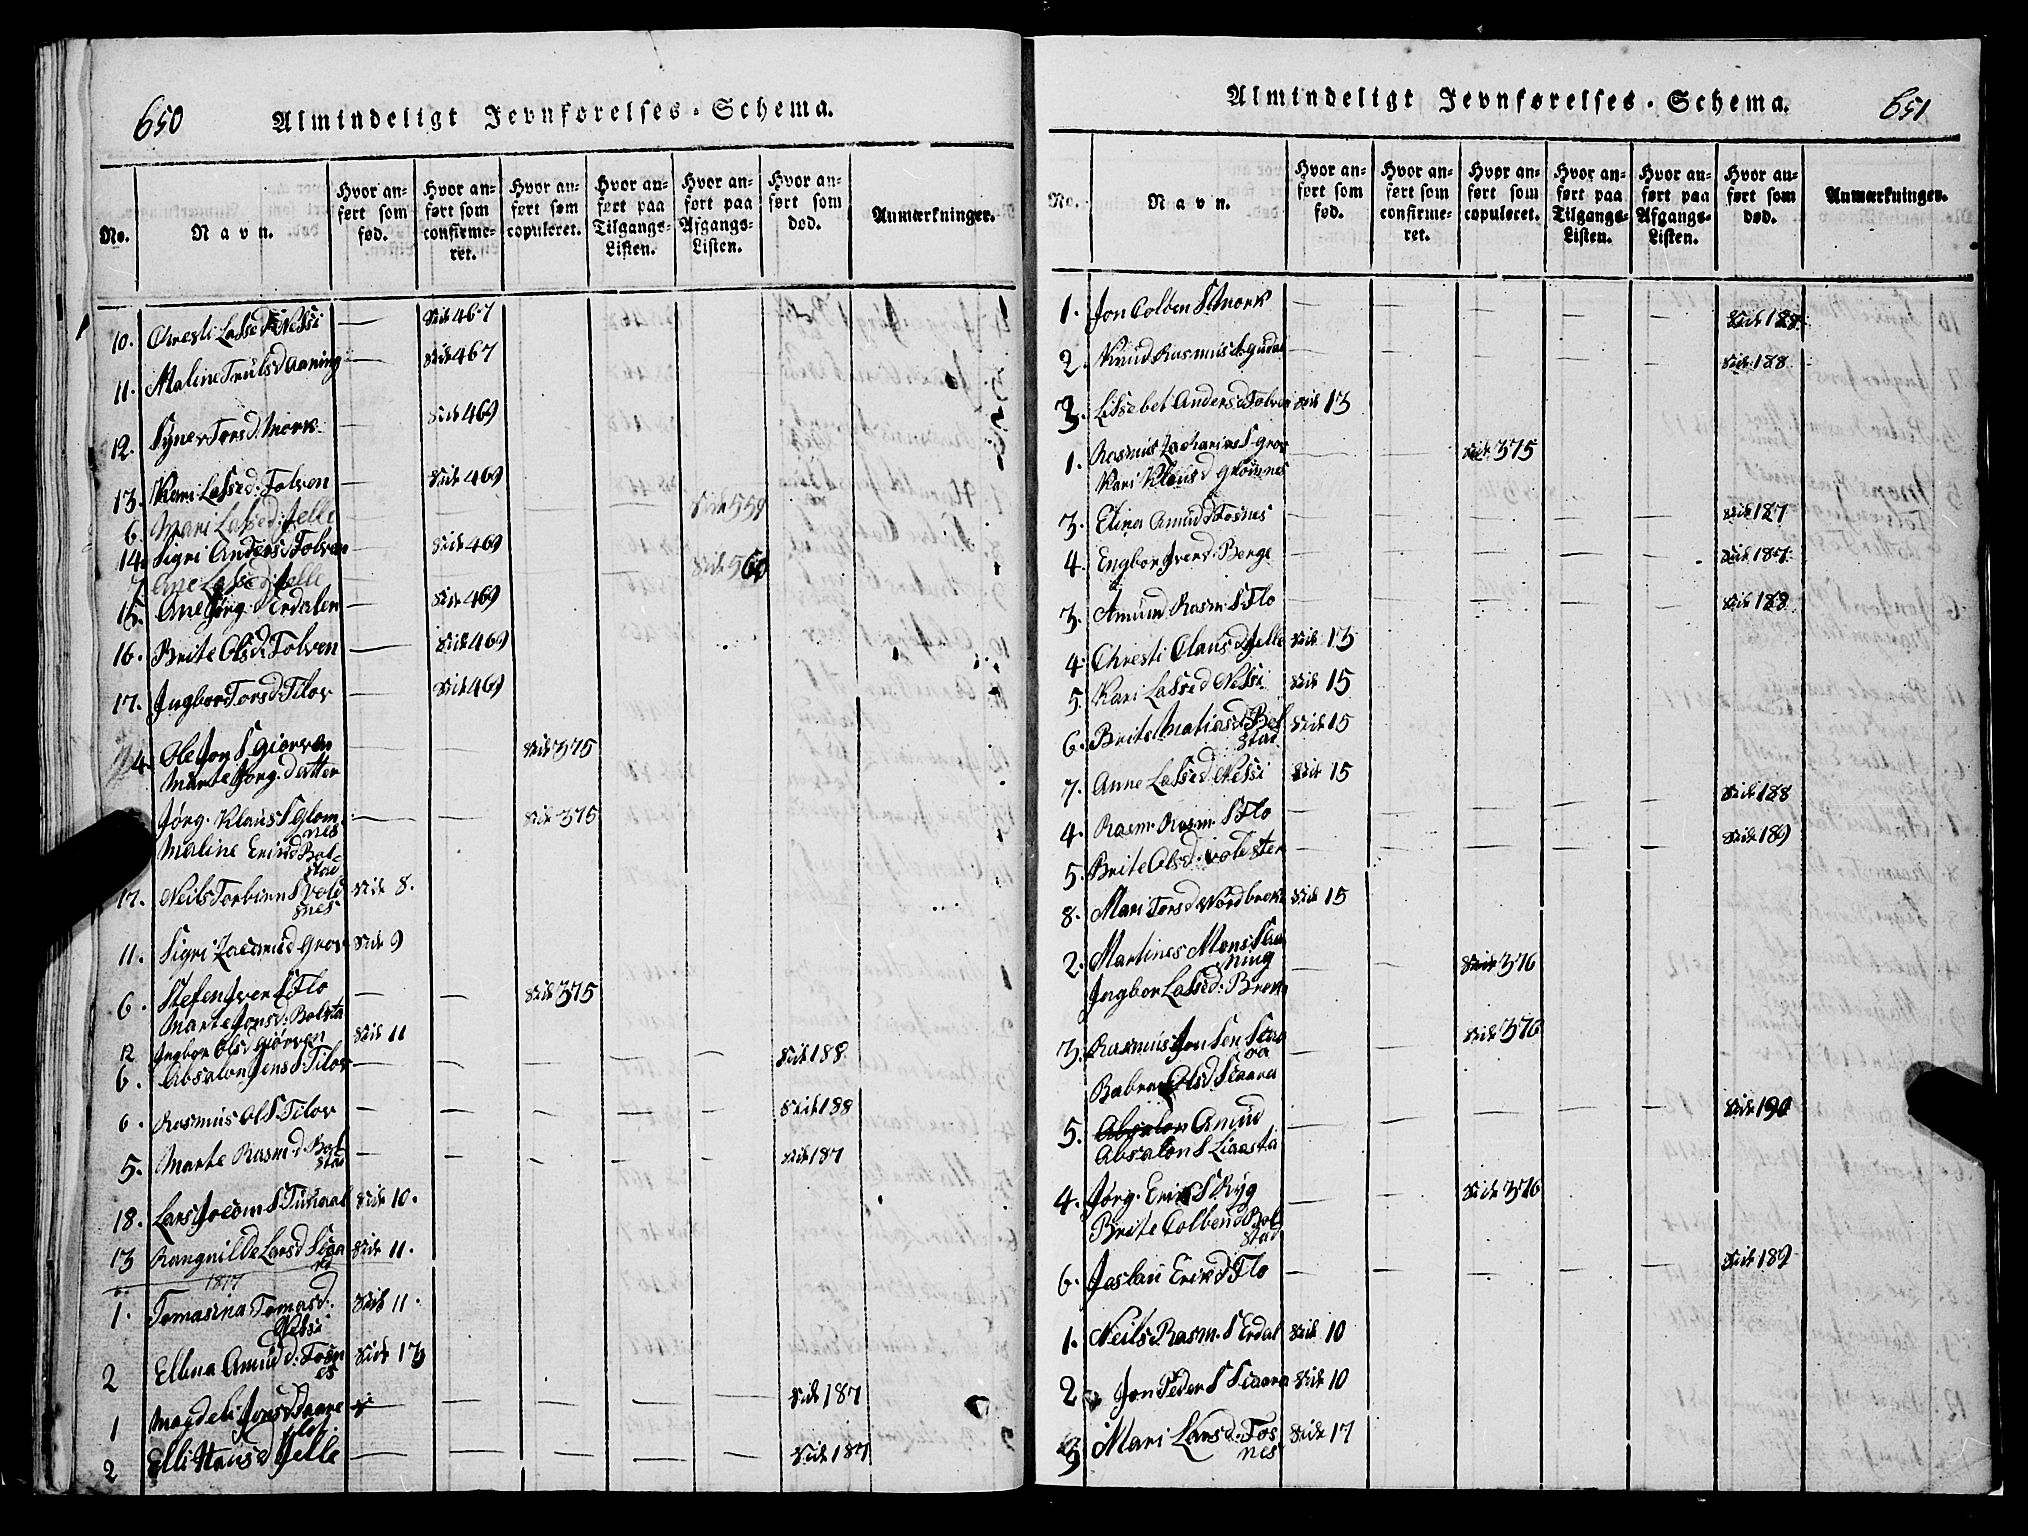 650
Almindeligt Jevnførelses-Schema.
No.
Navn.
Hvor anført som fød.
Hvor anført som confirmeret.
Hvor anført som copuleret.
Hvor anført paa Tilgangs-Listen.
Hvor anført paa Afgangs-Listen.
Hvor anført som død.
Anmærkninger.
10. Chresti Lassed Nessi — Side 467
11. Maline Truls d Aaning — Side 467
12. Syner Tors d. Mork — Side 469
13. Kari Lassed: Folven — Side 469
6. Mari Lassed: Jelle Side 559
14. Sigri Anders d Folven — Side 469
7. Ane Lassed Jelle Side 560
15. Ane Jørg. d Erdalen — Side 469
16. Brite Ols d: Folven — Side 469
17. Ingbor Tors d: Tilov — Side 469
4. Ole Jon S Giørven — — Side 375
Marte Jørg. datter
Jørg. Klaus S Glom — — Side 375
nes
Maline Erics d Bol-
stad
17. Neils Torbiørn S Vole Side 8.
snes
11. Sigri Zacarias d Grov Side 9
6. Stefen Iver S Flo — — Side 375
Marte Jons d: Bolsta
12 Ingbor Ols d Giørven Side 11
6. Absalon Jens S Tilov — — — — — Side 188
6. Rasmus Ol S. Tilov — — — — — Side 188
5. Marte Rasm d Bol — — — — — Side 187
stad
18. Lars Jocom S Tunaal Side 10.
13 Rangnilde Lars d Scaa Side 11.
1817
1. Tomasina Tomas d. Side 11.
Nessi
2 Ellina Amund d: Fosn Side 13
es
1 Magdeli Jons d Raare — — — — Side 187
2 Elli Hans d Jelle — — — — — Side 187
Almindeligt Jevnførelses-Schema.
651
No.
Navn.
Hvor anført som fød.
Hvor anført som confirmeret.
Hvor anført som copuleret.
Hvor anført paa Tilgangs-Listen.
Hvor anført paa Afgangs-Listen.
Hvor anført som død.
Anmærkninger.
1. Jon Colben S. Mork — — — — — Side 188
2. Knud Rasmus S. Gudal — — — — — Side 188
3. Lissebet Anders d Folven Side 13
1. Rasmus Zacharias S Grov — — Side 375
Kari Klaus d Glomnes
3. Elina Amund d Fosnes — — — — — Side 187
4. Engbor Iver d: Berge — — — — — Side 187
3. Amund Rasm. S Flo — — — — — Side 188
4. Chresti Claus d Jelle Side 13
5. Kari Lassed Nessi Side 15
6. Brite Matias d Bol Side 15
stad
7. Anne Lassed: Nessi Side 15
4. Rasm. Rasm. S Flo — — — — — Side 188
5. Brite Ols d: — — — — — Side 189
8. Mari Tors d Nordbrek Side 15
2. Martines Mons S Aa — — Side 376
ning
Ingbor Lassed: Breke
3. Rasmus Jon Sen Scaa — — Side 376
ra
Ols d Scaara
5. Absalon Amund — — — — — Side 190
Absalon S Liaasta
4. Jørg. Erik S Ryg — — Side 376
Brite Colben d Bol
stad
6. Erik d Flo — — — — — Side 189
1. Neils Rasm. S Erdal Side 10
2 Jon Peder S Scaara Side 10
3 Mari Lars d: Fos Side 17
nes